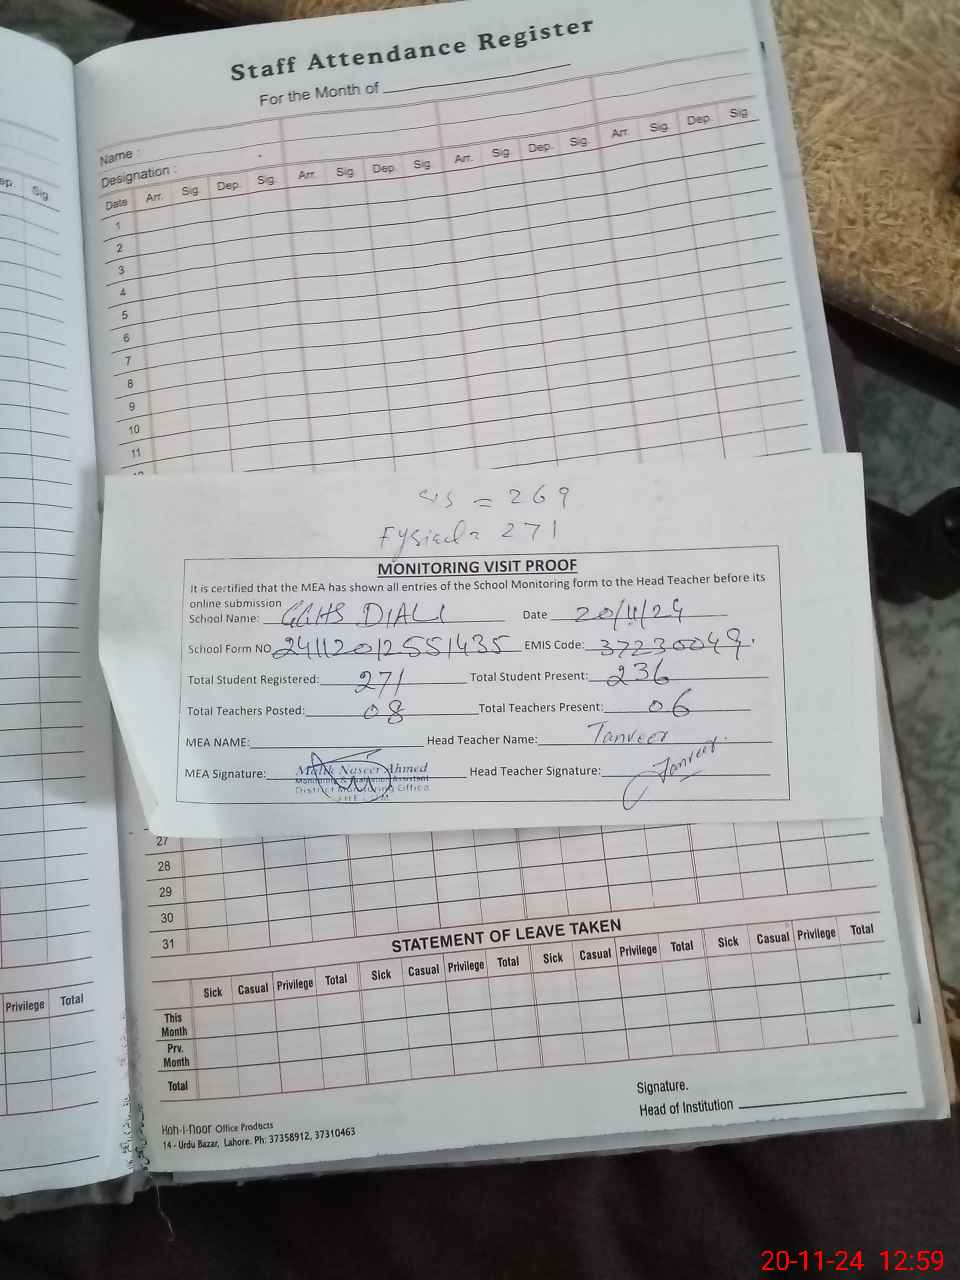 Staff Attendance Register
For the Month of
Name :
Designation :
Date Arr. Sig. Dep. Sig. Arr. Sig. Dep. Sig. Arr. Sig. Dep. Sig. Arr. Sig. Dep. Sig.
ep. Sig.
1
2
3
4
5
6
7
8
9
10
11
SIS = 269
Fysical = 271
MONITORING VISIT PROOF
It is certified that the MEA has shown all entries of the School Monitoring form to the Head Teacher before its
online submission
School Name: GGHS DIALI Date 20/11/24
School Form NO 24112012551435 EMIS Code: 37230049.
Total Student Registered: 271 Total Student Present: 236
Total Teachers Posted: 08 Total Teachers Present: 06
MEA NAME: Head Teacher Name: Tanveer
MEA Signature: Malik Naseer Ahmed Head Teacher Signature: Tanveer
Monitoring & Evaluation Assistant
District Monitoring Office
27
28
29
30
31
STATEMENT OF LEAVE TAKEN
Sick Casual Privilege Total Sick Casual Privilege Total Sick Casual Privilege Total Sick Casual Privilege Total
Privilege Total
This Month
Prv. Month
Total
Signature.
Head of Institution
Koh-i-noor Office Products
14 - Urdu Bazar, Lahore. Ph: 37358912, 37310463
20-11-24 12:59